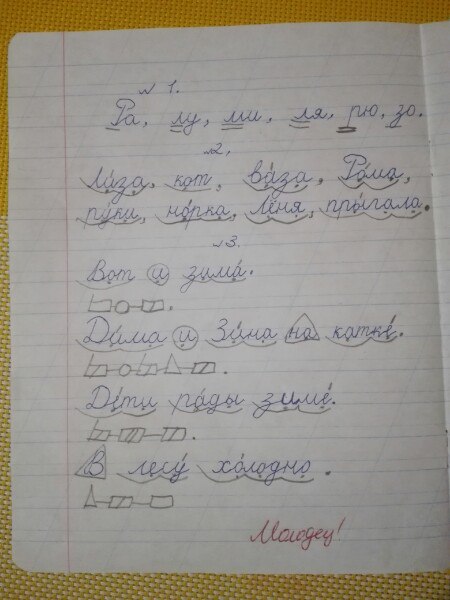 № 1.
Ра, лу, ми, ля, рю, зо.
№2.
Ла́за, кот, ва́за, Ро́ма,
ру́ки, но́рка, Лёня, пры́гала.
№3.
Вот и зима́.
Ди́ма и Зи́на на катке́.
Де́ти ра́ды зиме́.
В лесу́ хо́лодно.
Молодец!